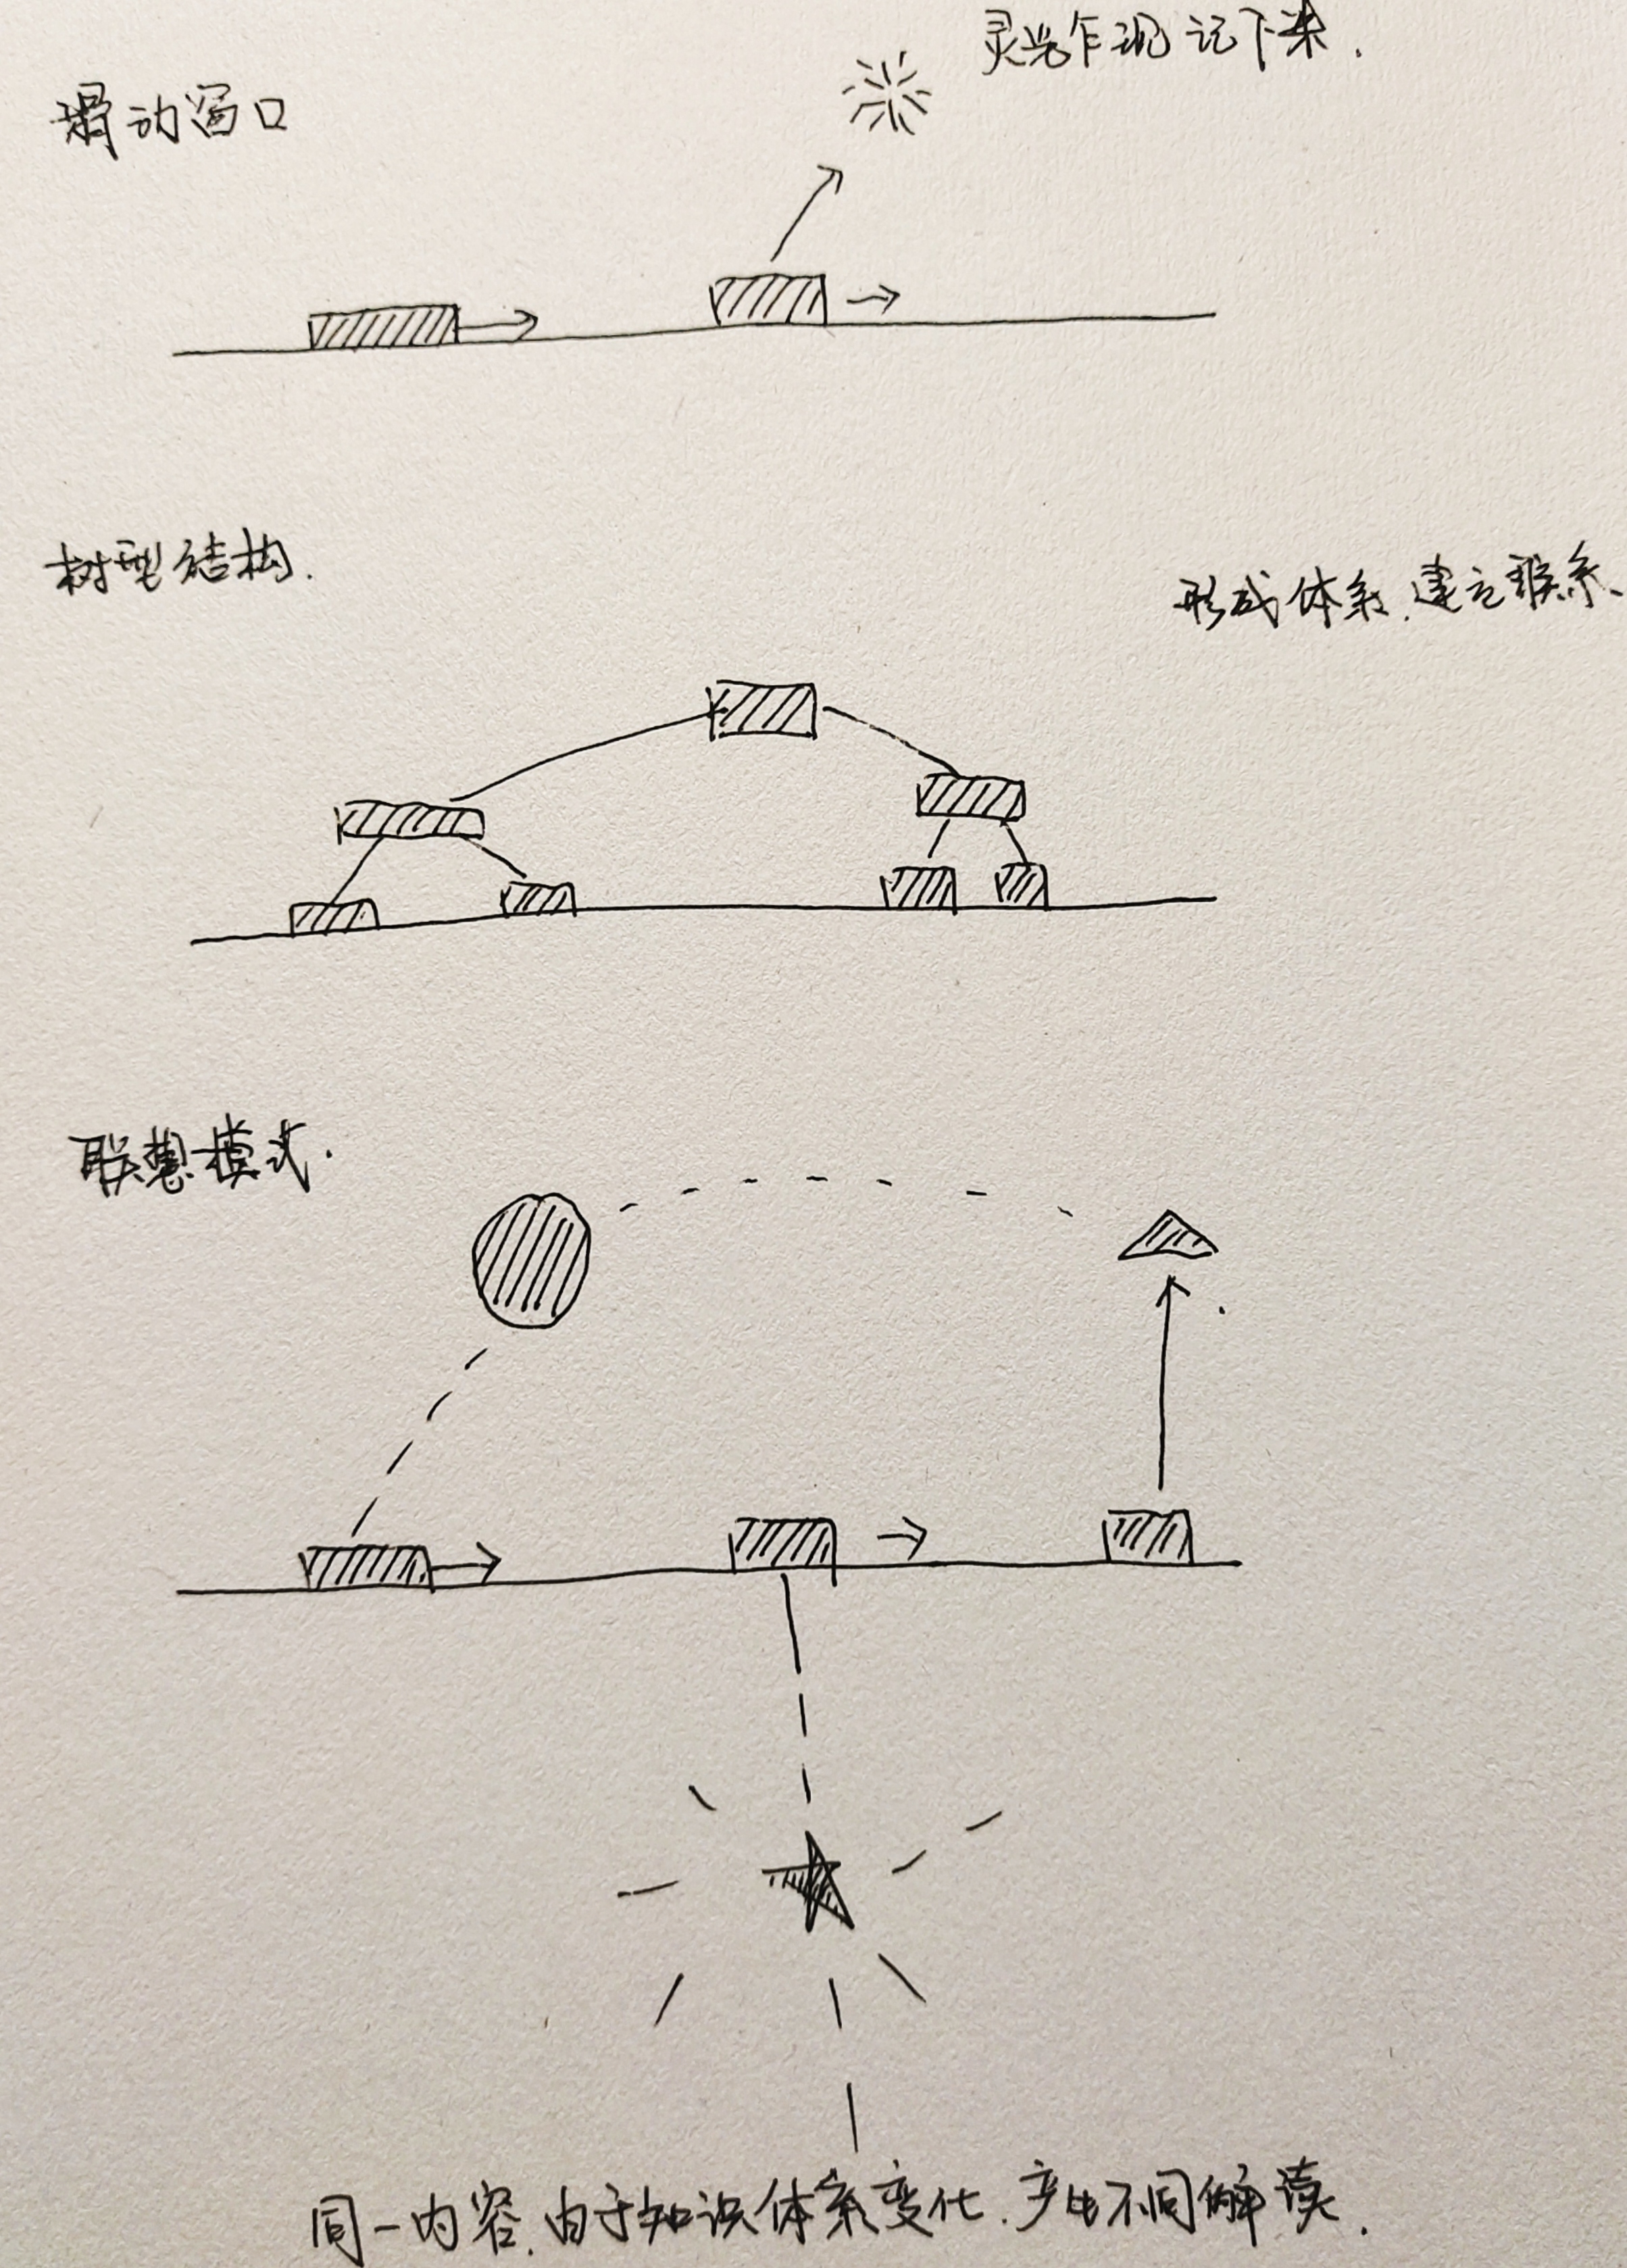 灵光乍现 记下来.
滑动窗口
树型结构.
形成体系.建立联系、
联想模式.
同一内容.由于知识体系变化.产生不同解读.